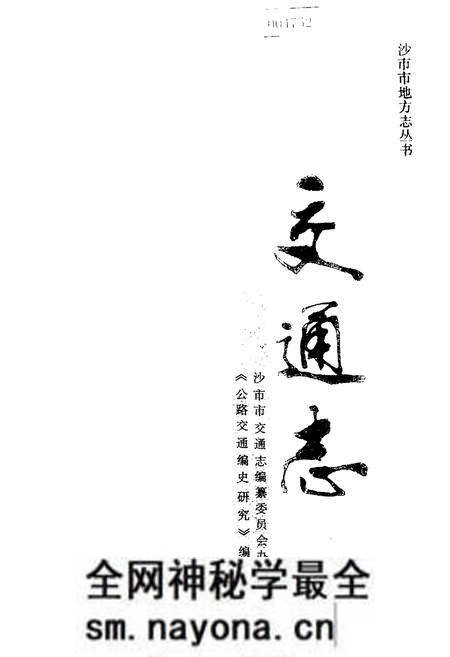 004752
沙市市地方志丛书
交通志
沙市市交通志编纂委员会办
《公路交通编史研究》编
全网神秘学最全
sm.nayona.cn